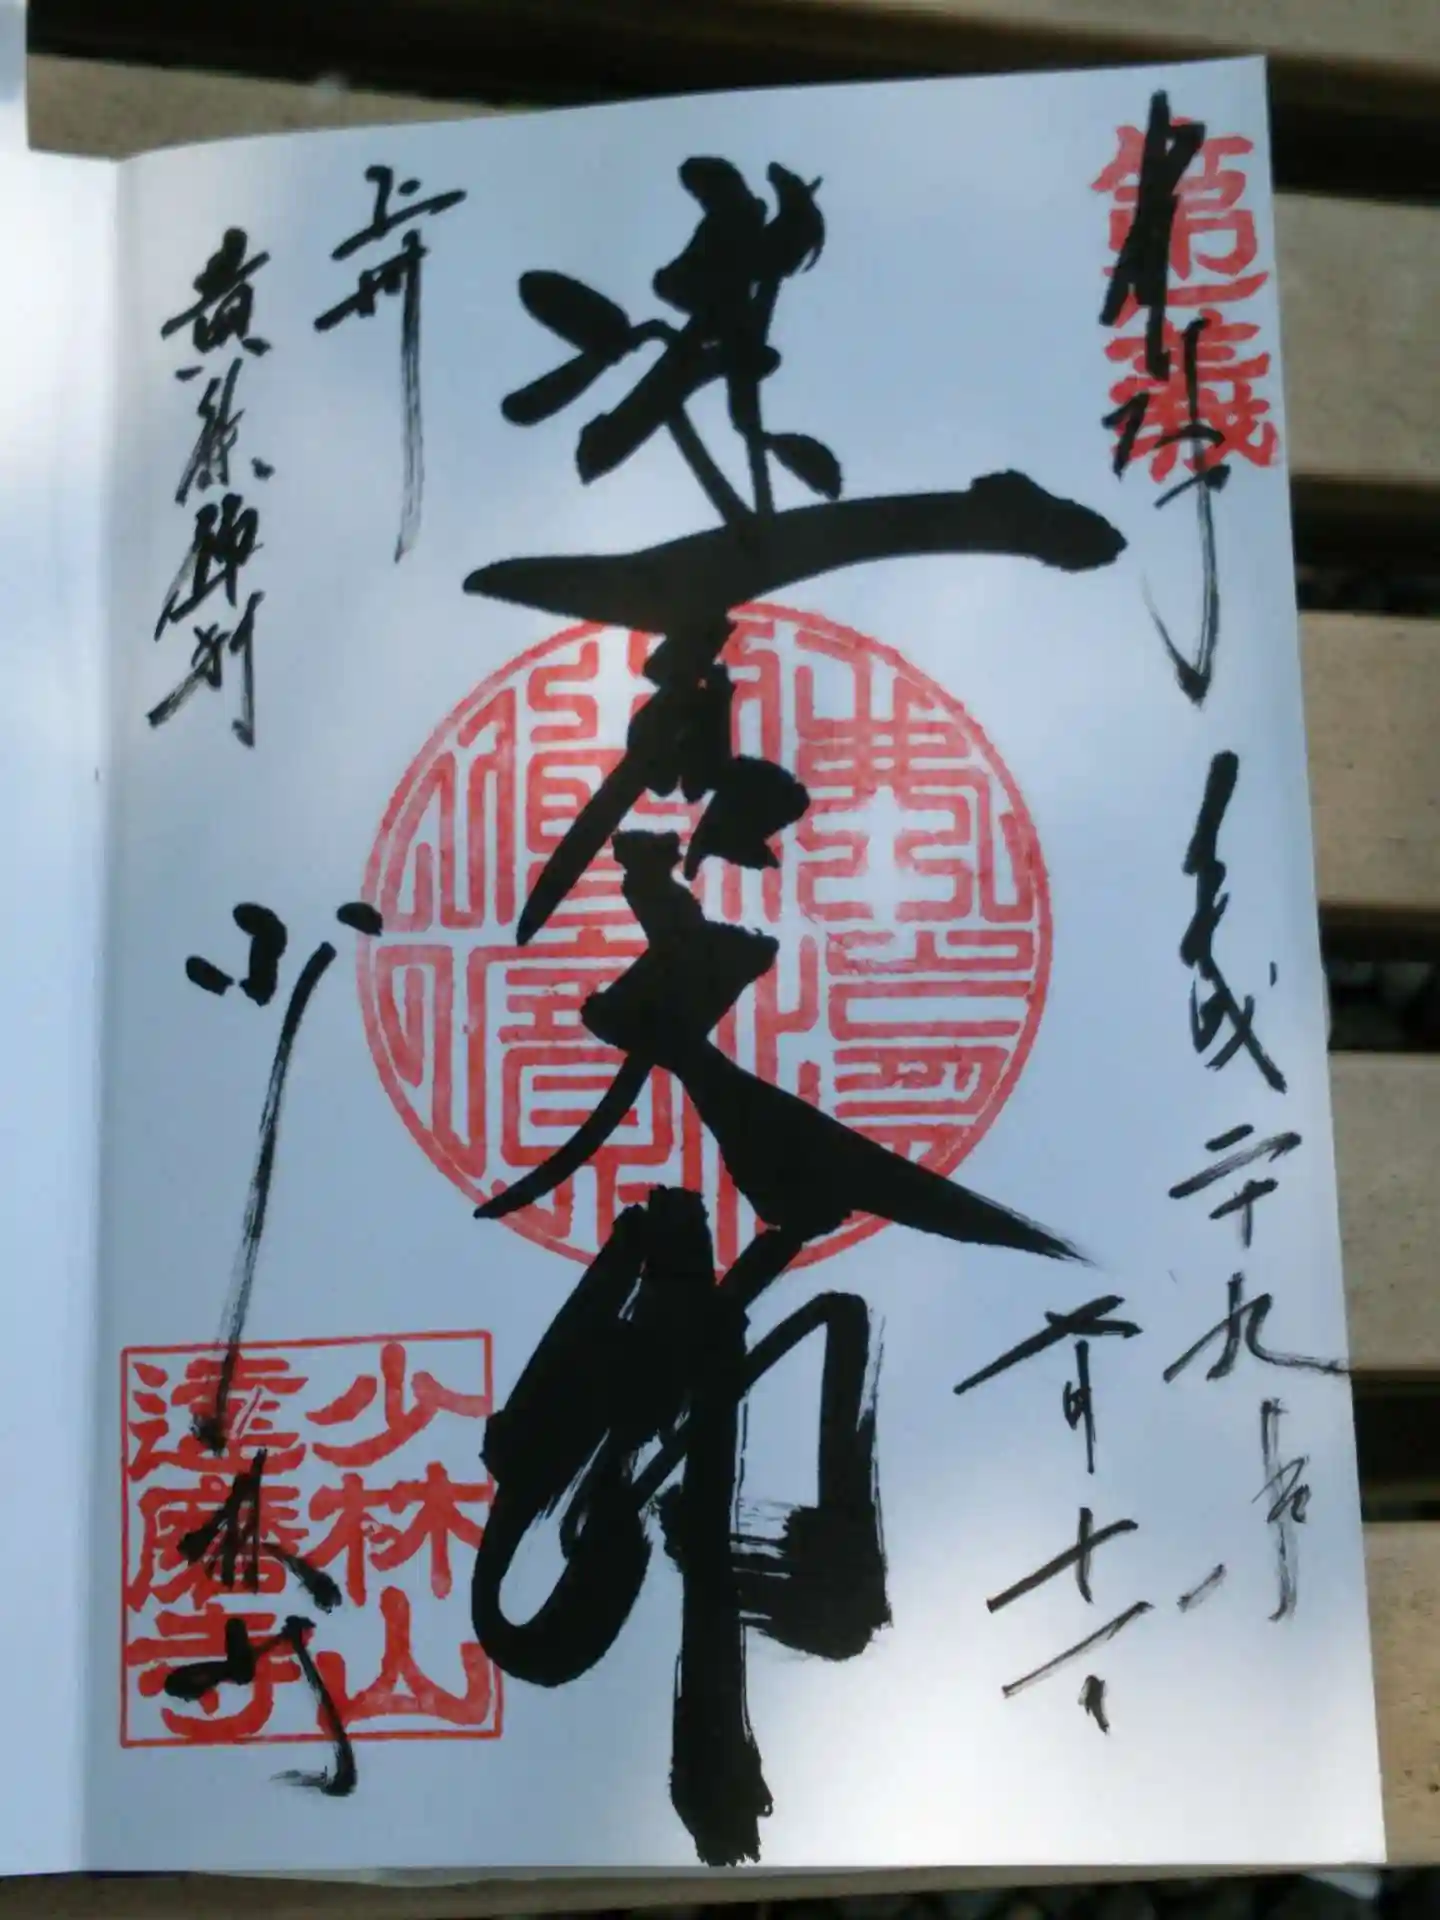 第一義
奉拝
平成二十九年
七月十
達磨大師
上州
黄檗禅刹
少林山
少林山
達磨寺